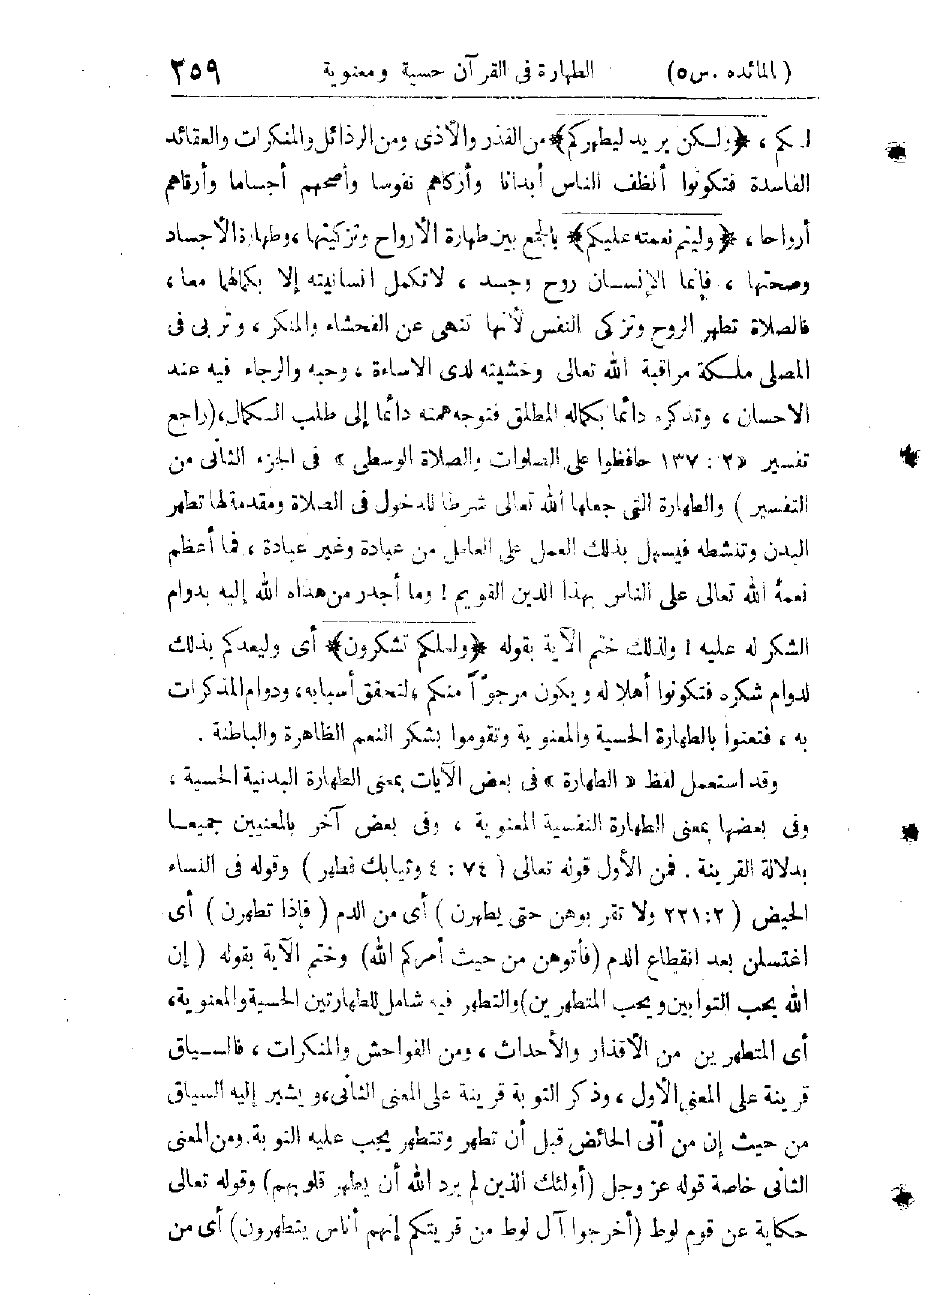 ( المائده . س ٥ ) الطهارة فى القرآن حسية ومعنوية ٢٥٩
لكم ، ﴿ولكن يريد ليطهركم﴾ من القذر والأذى ومن الرذائل والمنكرات والعقائد
الفاسدة فتكونوا أنظف الناس أبدانا وأزكاهم نفوسا وأصحهم أجساما وأرقاهم
أرواحا ، ﴿وليتم نعمته عليكم﴾ بالجمع بين طهارة الأرواح وتزكيتها ، وطهارة الأجساد
وصحتها ، فإنما الإنسان روح وجسد ، لاتكمل انسانيته إلا بكمالهما معا ،
فالصلاة تطهر الروح وتزكى النفس لأنها تنهى عن الفحشاء والمنكر ، وتربى فى
المصلى ملكة مراقبة الله تعالى وخشيته لدى الاساءة ، وحبه والرجاء فيه عند
الاحسان ، وتذكره دائما بكماله المطلق فتوجه همته دائما إلى طلب الكمال،(راجع
تفسير «٢ : ١٣٧ حافظوا على الصلوات والصلاة الوسطى» فى الجزء الثانى من
التفسير ) والطهارة التى جعلها الله تعالى شرطا للدخول فى الصلاة ومقدمة لها تطهر
البدن وتنشطه فيسهل بذلك العمل على العامل من عبادة وغير عبادة ، فما أعظم
نعمة الله تعالى على الناس بهذا الدين القويم ! وما أجدر من هداه الله إليه بدوام
الشكر له عليه ! ولذلك ختم الآية بقوله ﴿ولعلكم تشكرون﴾ أى وليعدكم بذلك
لدوام شكره فتكونوا أهلا له ويكون مرجوًّا منكم ، لتحقق أسبابه، ودوام المذكرات
به ، فتعنوا بالطهارة الحسية والمعنوية وتقوموا بشكر النعم الظاهرة والباطنة .
وقد استعمل لفظ « الطهارة » فى بعض الآيات بمعنى الطهارة البدنية الحسية ،
وفى بعضها بمعنى الطهارة النفسية المعنوية ، وفى بعض آخر بالمعنيين جميعا
بدلالة القرينة . فمن الأول قوله تعالى ( ٧٤ : ٤ وثيابك فطهر ) وقوله فى النساء
الحيض ( ٢:٢٢١ ولا تقربوهن حتى يطهرن ) أى من الدم ( فإذا تطهرن ) أى
اغتسلن بعد انقطاع الدم (فأتوهن من حيث أمركم الله) وختم الآية بقوله ( إن
الله يحب التوابين ويحب المتطهرين) والتطهر فيه شامل للطهارتين الحسية والمعنوية،
أى المتطهرين من الأقذار والأحداث ، ومن الفواحش والمنكرات ، فالسياق
قرينة على المعنى الأول ، وذكر التوبة قرينة على المعنى الثانى، ويشير إليه السياق
من حيث إن من أتى الحائض قبل أن تطهر وتتطهر يجب عليه التوبة. ومن المعنى
الثانى خاصة قوله عز وجل (أولئك الذين لم يرد الله أن يطهر قلوبهم) وقوله تعالى
حكاية عن قوم لوط (أخرجوا آل لوط من قريتكم إنهم أناس يتطهرون) أى من